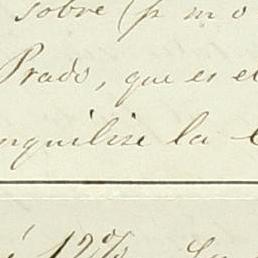 sobre (p m o
Prado, que es el
nquilise la
12%